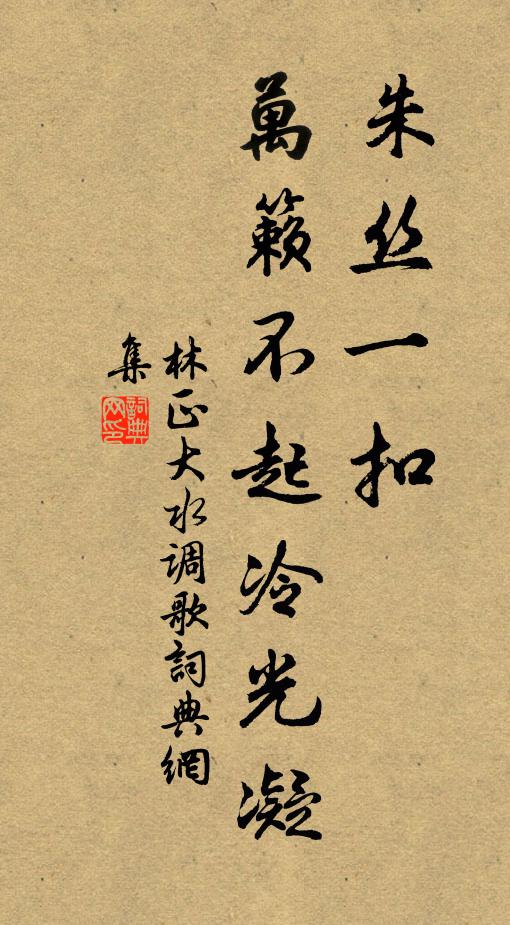 朱丝一扣
萬籟不起冷光凝
林正大水调歌詞典網
集
詞典
网印